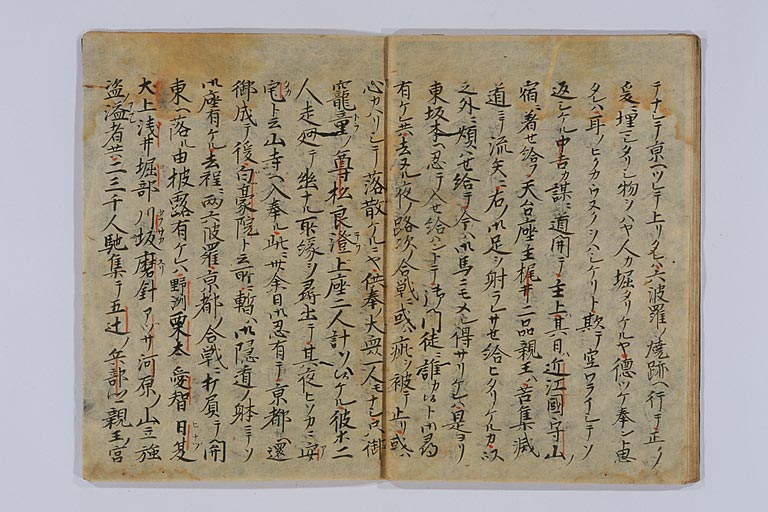 テナシテ京ヘソレテ上リタレハ六波羅ノ焼跡ヘ行テ正シ
爰ニ埋ミタリシ物シハヤ人カ堀タリケルヤ徳ツケ奉ント恵
タレハ耳ノヒクカウスクシハシケリト欺テ空ワライシテソ
返シケル中吉カ謀ニ道開テ主上其日ハ近江國守山ノ
宿ニ著セ給フ天台座主梶井二品親王ハ苔集滅
道ニテ流矢ニ右ノ御足シ射ラレサセ給ヒタリケルカ以
之外ニ煩ハセ給テ今ハ御馬ニモメシ得サリケレハ是ヨリ
東坂本ヘ忍テ入セ給ハントテ御門徒ニ誰カ候ト御尋
有ケレ共去ヌル夜ノ路次ノ合戦ニ或ハ疵ヲ被テ止リ或ハ
心カハリシテ落散ケルニヤ供奉ノ大衆一人モナシ只御
寵童ノ尊松良澄上座二人計ソツムケル彼ホ二
人走廻テ幽ナル所縁シ尋出テ其夜ヒソカニ安
宅ト云山寺ヘ入奉ル此ニ廿余日御忍有テ京都ヘ還
御成テ後白毫院ト云所ニ暫ハ御隠遁ノ躰ニテソ
御座有ケル去程ニ両六波羅京都ノ合戦ニ打負テ関
東ヘ落ル由披露有ケレハ野洲栗本愛智日夏
犬上浅井堀部川坂磨針アツサ河原ノ山立強
盗溢者共二三千人馳集テ五辻ノ兵部卿親王宮